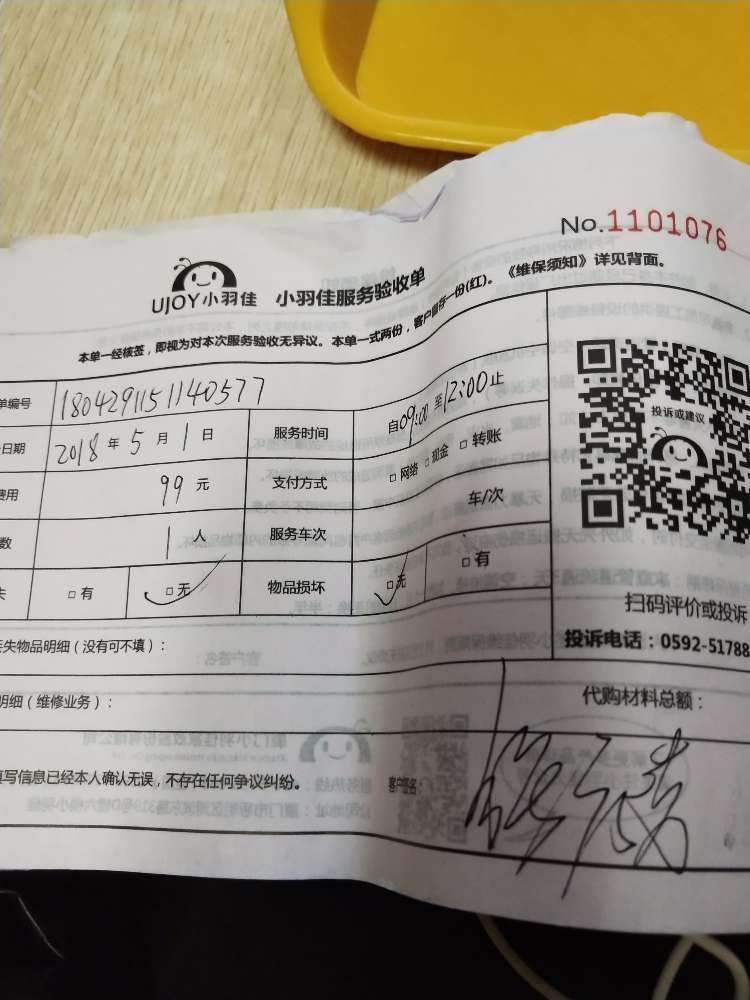 No.1101076
UJOY小羽佳 小羽佳服务验收单
本单一经核签，即视为对本次服务验收无异议。本单一式两份，客户留存一份(红)。《维保须知》详见背面。
单编号 1804291151140577
日期 2018 年 5 月 1 日 服务时间 自09:00 至12:00止
费用 99 元 支付方式 □ 网络 □ 现金 □ 转账
数 1 人 服务车次 车/次
失 □ 有 □ 无 物品损坏 □ 无 □ 有
投诉或建议
扫码评价或投诉
投诉电话：0592-51788
丢失物品明细（没有可不填）：
明细（维修业务）： 代购材料总额：
填写信息已经本人确认无误，不存在任何争议纠纷。 客户签名：